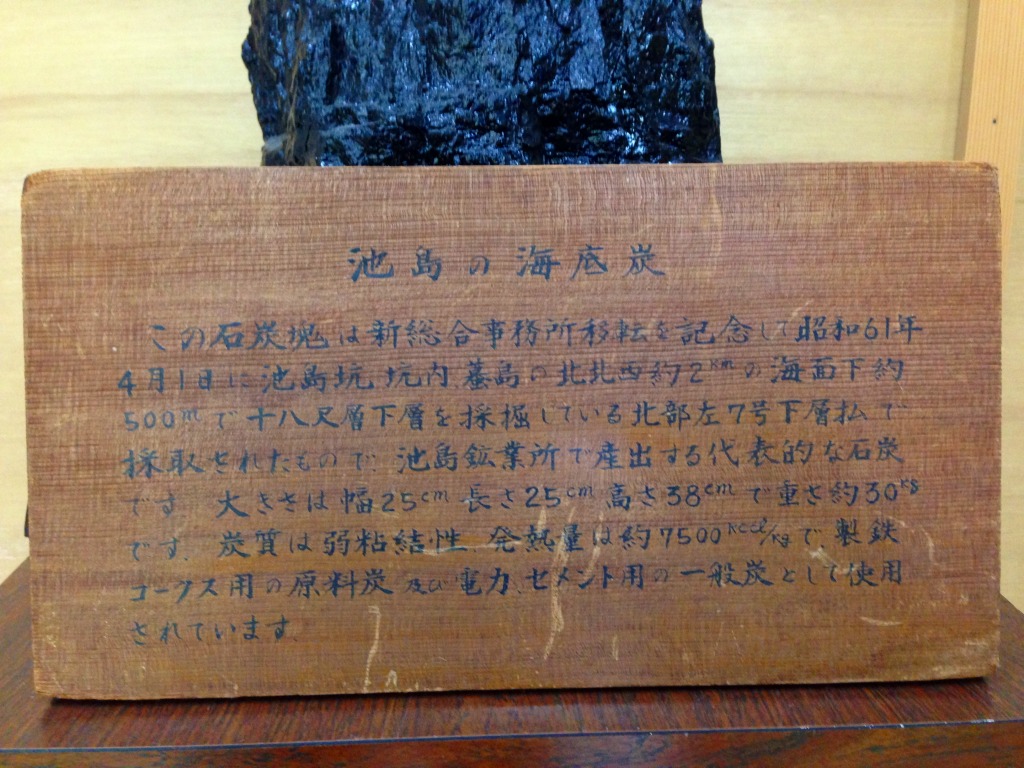 池島の海底炭
この石炭塊は新総合事務所移転を記念して昭和61年
4月1日に池島坑坑内蟇島の北北西約2kmの海面下約
500mで十八尺層下層を採掘している北部左7号下層払で
採取されたもので、池島鉱業所で産出する代表的な石炭
です。大きさは幅25cm長さ25cm高さ38cmで重さ約30kg
です。炭質は弱粘結性、発熱量は約7500kcal/kgで製鉄
コークス用の原料炭及び電力、セメント用の一般炭として使用
されています。